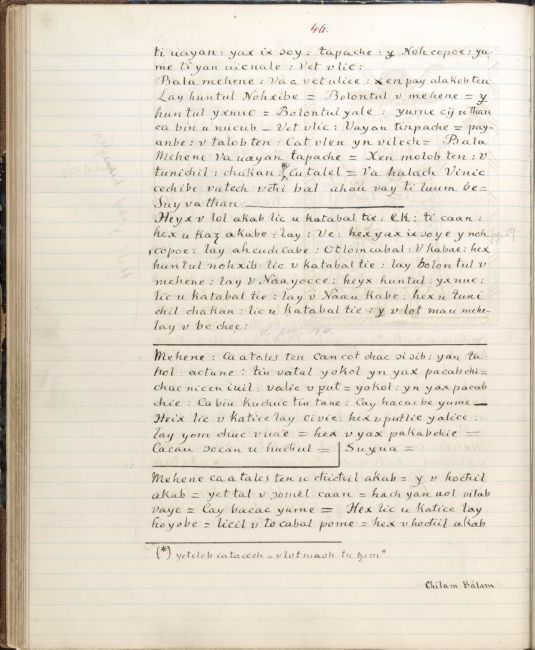 46.
ti uayan : yax ix soy : tapache : y Noh copoe : yu
me ti yan uicnale : Vet vlic :
Bala mehene : Vaa vet ulice : xen pay alakob ten
Lay huntul Nohxibe = Bolontul v mehene = y
huntul yxnuc = Bolontul yale : yume cij u than
ca bin u nucub - Vet vlic : Vayan tinpache = pay-
anbe : v talob ten : Cat vlen yn vilech = Bala
Mehene Va uayan tapache = Xen molob ten : v
tunichil : chakan : * Cu talel = Va halach Vinic
cechibe vatech vchi bal ahau vay ti luum be=
Suy va than
Heyx v lol akab lic u katabal tie : EK : ti caan :
hex u kaz akabe : lay : Ve : hex yax ix soye y noh
copoe : lay ah cudicabe : Otlom cabal : V kabae : hex
huntul nohxib lic v katabal tie : lay bolontul v
mehene : lay v Naayocce : heyx huntul : yxnuc :
lic u katabal tie : lay v Naau kabe : hex u tuni
chil chakan : lic u katabal tie : y v lot mau mehe-
lay v be chee :
Mehene : Ca a tales ten can cot chac sisib : yan tu
hol : actune : tin vatal yokol yn yax pacab chi=
chac niccen iuil : valic v put = yokol : yn yax pacab
chie : Ca bin kuchuc tin tane : Cay hacac be yume
Heix lic v katice lay civie : hex v putlic yalice :
lay yom chuc vuae = hex v yax pakab chie =
Cacau socan u huchul = Suyua =
Mehene ca a tales ten u chichil akab = y v hochil
akab = yettal v somel caan = hach yan uol vilab
vaye = Cay bacac yume = Hex lic u katice lay
hoyobe = licil v tocabal pome = hex v hochil akab
(*) yetelob catacech = v lot maoh tu kem"
Chilam Balam